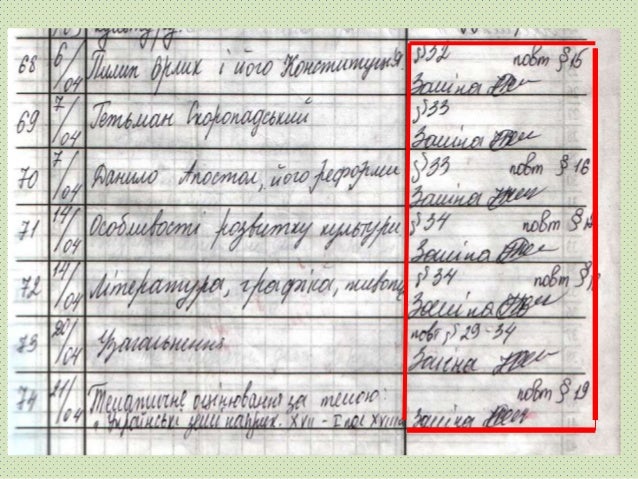 68 6/04 Пилип Орлик і його Конституція §32 повт §15
Заміна
69 7/04 Гетьман Скоропадський §33
Заміна
70 7/04 Данило Апостол, його реформи §33 повт §16
Заміна
71 14/04 Особливості розвитку культури §34 повт §
Заміна
72 14/04 Література, графіка, живопис §34 повт §
Заміна
73 20/04 Узагальнення повт §29-34
Заміна
74 21/04 Тематичне оцінювання за темою: повт §19
"Українські землі наприк. XVII - I пол XVIII Заміна